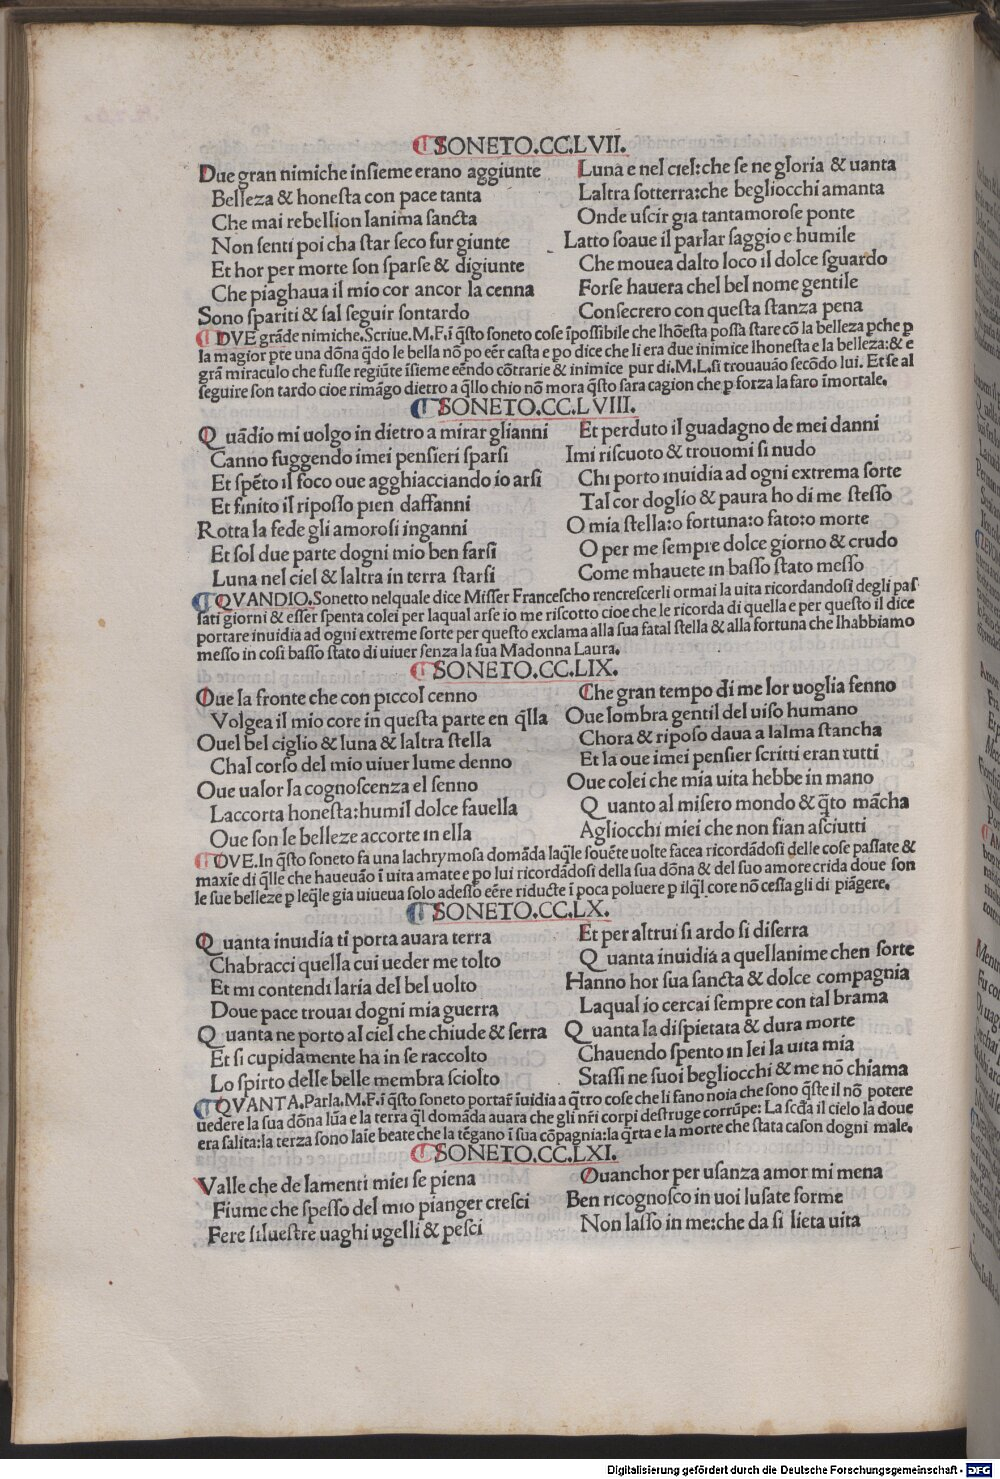 SONETO.CC.LVII.
Due gran nimiche inſieme erano aggiunte
Belleza & honeſta con pace tanta
Che mai rebellion lanima ſancta
Non ſenti poi cha ſtar ſeco fur giunte
Et hor per morte ſon ſparſe & digiunte
Che piaghaua il mio cor ancor la cenna
Sono ſpariti & ſal ſeguir ſontardo
Luna e nel ciel:che ſe ne gloria & uanta
Laltra ſotterra:che begliocchi amanta
Onde uſcir gia tantamoroſe ponte
Latto ſoaue il parlar ſaggio e humile
Che mouea dalto loco il dolce ſguardo
Forſe hauera chel bel nome gentile
Conſecrero con queſta ſtanza pena
DVE grãde nimiche.Scriue.M.F.ĩ q̃ſto ſoneto coſe ĩpoſſibile che lhõeſta poſſa ſtare cõ la belleza ꝑche ꝑ
la magior ꝑte una dõna q̃do le bella nõ po eẽr caſta e po dice che li era due inimice lhoneſta e la belleza:& e
grã miraculo che fuſſe regiũte ĩſieme eẽndo cõtrarie & inimice pur di.M.L.ſi trouauão ſecõdo lui. Et ſe al
ſeguire ſon tardo cioe rimãgo dietro a q̃llo chio nõ mora q̃ſto ſara cagion che ꝑ forza la faro ĩmortale.
SONETO.CC.LVIII.
Quãdio mi uolgo in dietro a mirar glianni
Canno fuggendo imei penſieri ſparſi
Et ſpẽto il foco oue agghiacciando io arſi
Et finito il ripoſſo pien daffanni
Rotta la fede gli amoroſi inganni
Et ſol due parte dogni mio ben farſi
Luna nel ciel & laltra in terra ſtarſi
Et perduto il guadagno de mei danni
Imi riſcuoto & trouomi ſi nudo
Chi porto inuidia ad ogni extrema ſorte
Tal cor doglio & paura ho di me ſteſſo
O mia ſtella:o fortuna:o fato:o morte
O per me ſempre dolce giorno & crudo
Come mhauete in baſſo ſtato meſſo
QVANDIO.Sonetto nelquale dice Miſſer Franceſcho rencreſcerli ormai la uita ricordandoſi degli paſ
ſati giorni & eſſer ſpenta colei per laqual arſe io me riſcotto cioe che le ricorda di quella e per queſto il dice
portare inuidia ad ogni extreme ſorte per queſto exclama alla ſua fatal ſtella & alla fortuna che lhabbiamo
meſſo in coſi baſſo ſtato di uiuer ſenza la ſua Madonna Laura.
SONETO.CC.LIX.
Oue la fronte che con piccol cenno
Volgea il mio core in queſta parte en q̃lla
Ouel bel ciglio & luna & laltra ſtella
Chal corſo del mio uiuer lume denno
Oue ualor la cognoſcenza el ſenno
Laccorta honeſta:humil dolce fauella
Oue ſon le belleze accorte in ella
Che gran tempo di me lor uoglia fenno
Oue lombra gentil del uiſo humano
Chora & ripoſo daua a lalma ſtancha
Et la oue imei penſier ſcritti eran tutti
Oue colei che mia uita hebbe in mano
Quanto al miſero mondo & q̃to mãcha
Agliocchi miei che non fian aſciutti
OVE.In q̃ſto ſoneto fa una lachrymoſa domãda laq̃le ſouẽte uolte facea ricordãdoſi delle coſe paſſate &
maxĩe di q̃lle che haueuão ĩ uita amate e po lui ricordãdoſi della ſua dõna & del ſuo amore crida doue ſon
le ſue belleze ꝑ leq̃le gia uiueua ſolo adeſſo eẽre riducte ĩ poca poluere ꝑ ilq̃l core nõ ceſſa gli di piãgere.
SONETO.CC.LX.
Quanta inuidia ti porta auara terra
Chabracci quella cui ueder me tolto
Et mi contendi laria del bel uolto
Doue pace trouai dogni mia guerra
Quanta ne porto al ciel che chiude & ſerra
Et ſi cupidamente ha in ſe raccolto
Lo ſpirto delle belle membra ſciolto
Et per altrui ſi ardo ſi diſerra
Quanta inuidia a quellanime chen ſorte
Hanno hor ſua ſancta & dolce compagnia
Laqual io cercai ſempre con tal brama
Quanta la diſpietata & dura morte
Chauendo ſpento in lei la uita mia
Staſſi ne ſuoi begliocchi & me nõ chiama
QVANTA.Parla.M.F.ĩ q̃ſto ſoneto portar̃ ĩuidia a q̃tro coſe che li fano noia che ſono q̃ſte il nõ potere
uedere la ſua dõna lũa e la terra q̃l domãda auara che gli nr̃i corpi deſtruge corrũpe: La ſcđa il cielo la doue
era ſalita:la terza ſono laĩe beate che la tẽgano ĩ ſua cõpagnia:la q̃rta e la morte che ſtata caſon dogni male.
SONETO.CC.LXI.
Valle che de lamenti miei ſe piena
Fiume che ſpeſſo del mio pianger creſci
Fere ſilueſtre uaghi ugelli & peſci
Ouanchor per uſanza amor mi mena
Ben ricognoſco in uoi luſate forme
Non laſſo in me:che da ſi lieta uita
Digitalisierung gefördert durch die Deutsche Forschungsgemeinschaft - DFG